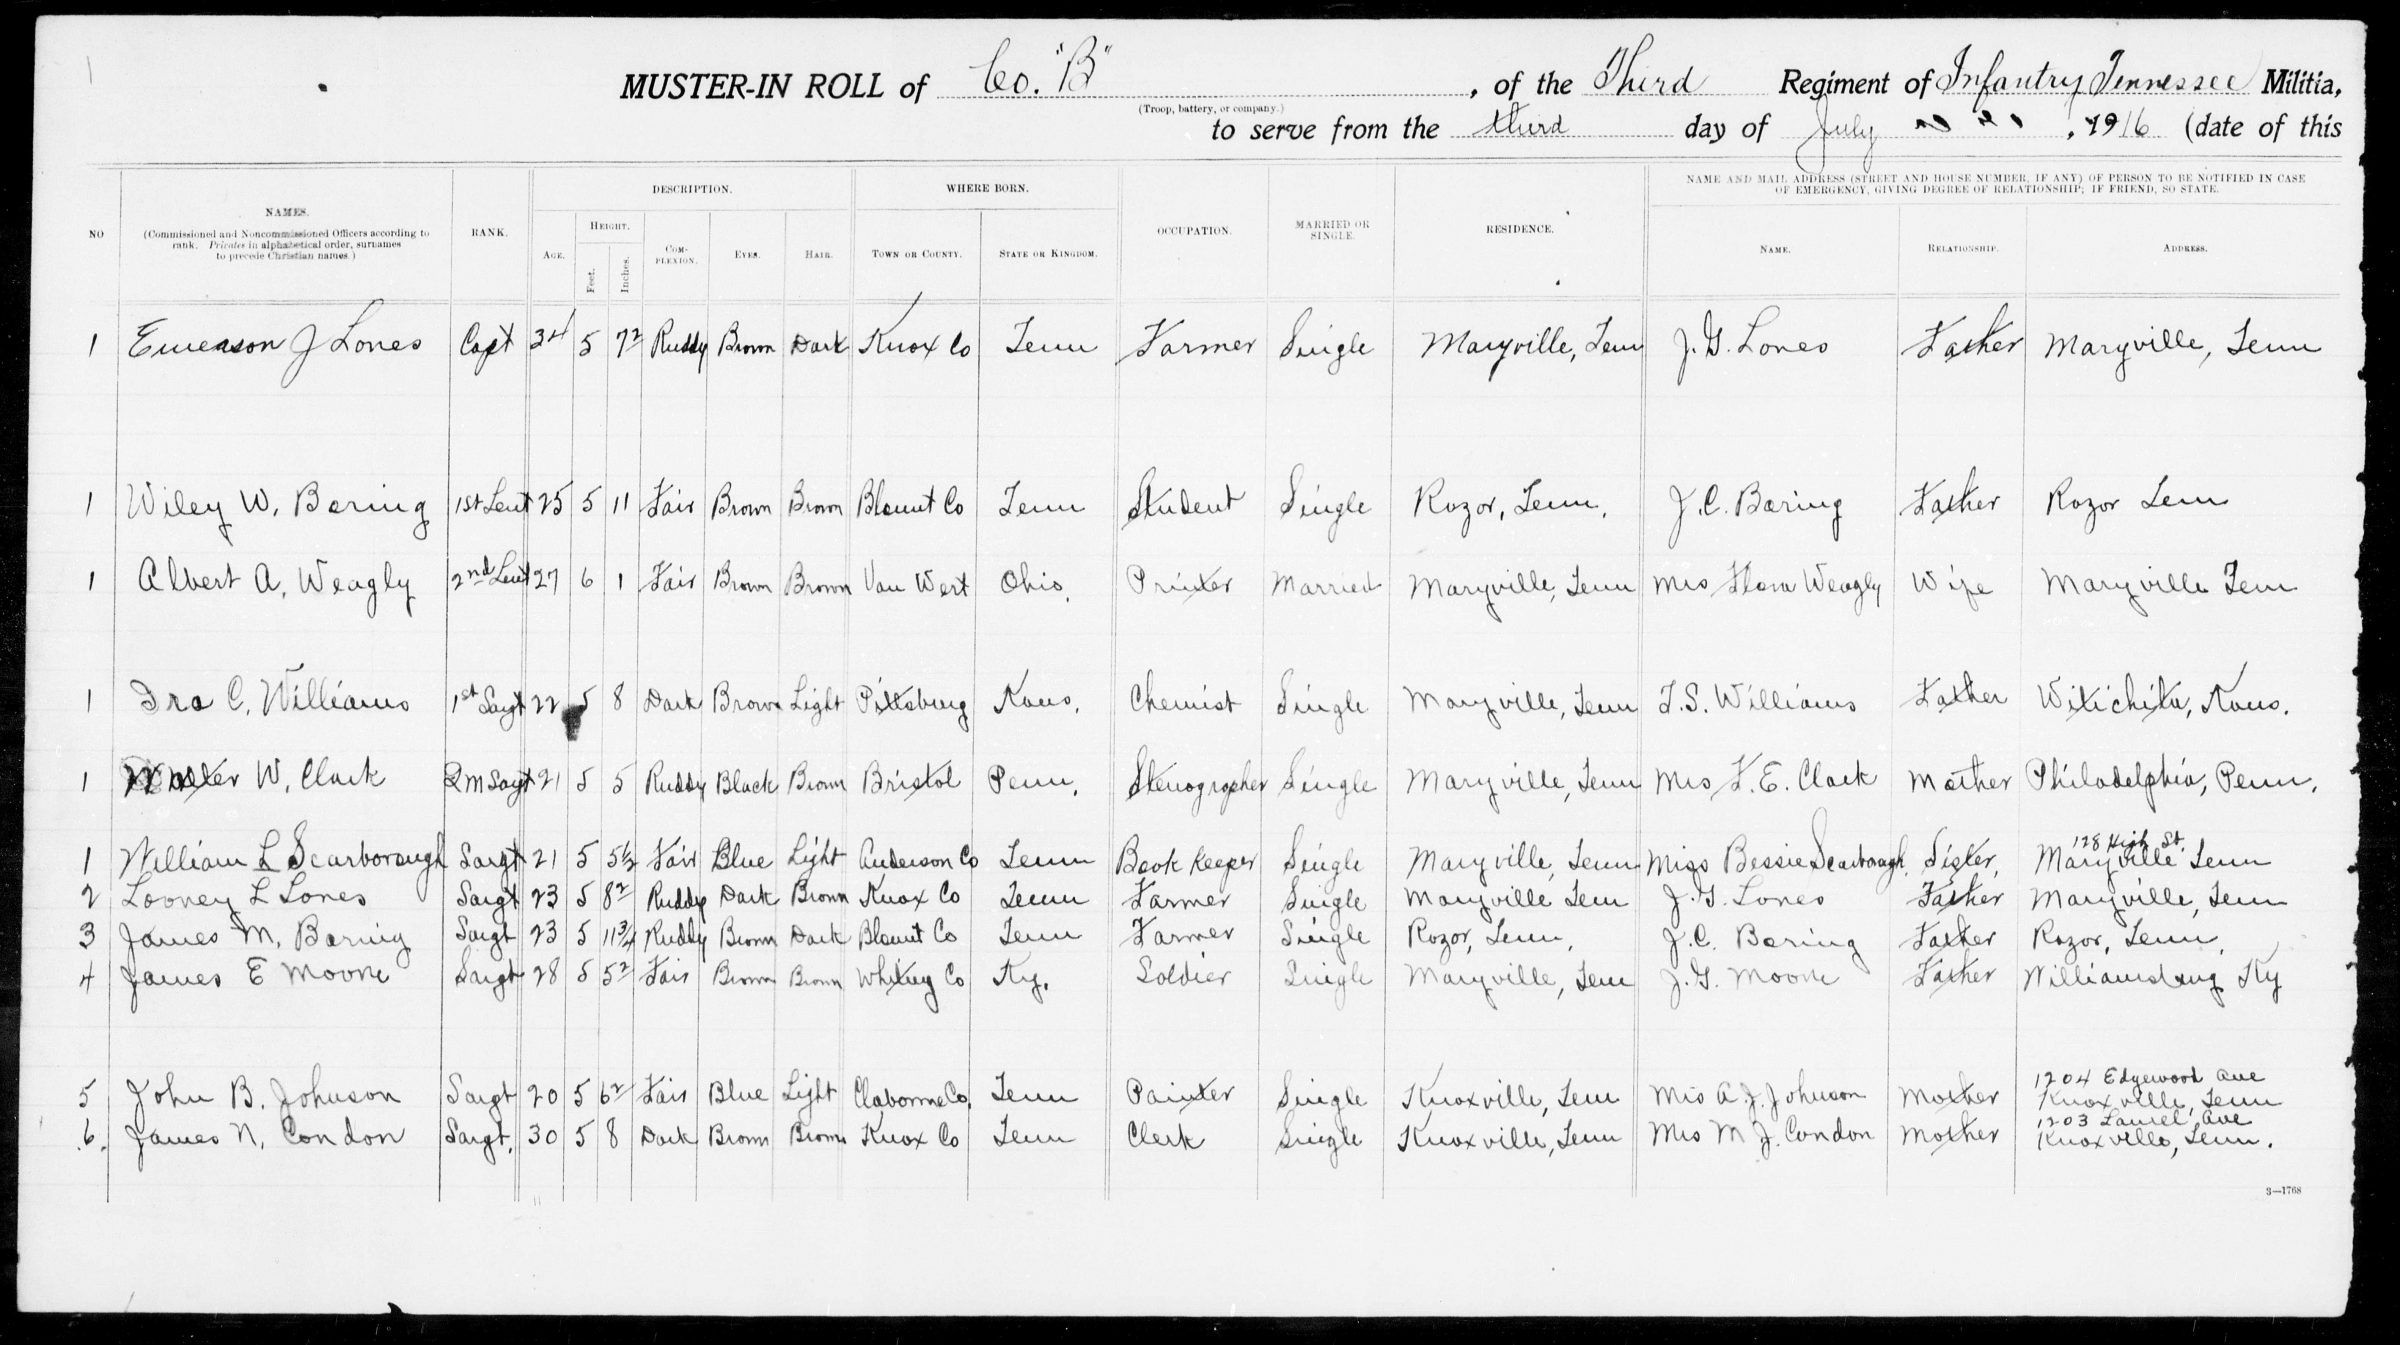 MUSTER-IN ROLL of Co. "B", of the Third Regiment of Infantry Tennessee Militia,
(Troop, battery, or company.)
to serve from the third day of July, 1916 (date of this
NO
NAMES.
(Commissioned and Noncommissioned Officers according to rank. Privates in alphabetical order, surnames to precede Christian names.)
RANK.
DESCRIPTION.
AGE.
HEIGHT.
Feet.
Inches.
COMPLEXION.
EYES.
HAIR.
WHERE BORN.
TOWN OR COUNTY.
STATE OR KINGDOM.
OCCUPATION.
MARRIED OR SINGLE.
RESIDENCE.
NAME AND MAIL ADDRESS (STREET AND HOUSE NUMBER, IF ANY) OF PERSON TO BE NOTIFIED IN CASE
OF EMERGENCY, GIVING DEGREE OF RELATIONSHIP; IF FRIEND, SO STATE.
NAME.
RELATIONSHIP.
ADDRESS.
1 Emerson J Lones Capt 34 5 7 2 Ruddy Brown Dark Knox Co Tenn Farmer Single Maryville, Tenn J. G. Lones Father Maryville, Tenn
1 Wiley W. Boring 1st Leut 25 5 11 Fair Brown Brown Blount Co Tenn Student Single Rozor, Tenn. J. C. Boring Father Rozor Tenn
1 Albert A. Weagly 2nd Leut 27 6 1 Fair Brown Brown Van Wert Ohio. Printer Married Maryville, Tenn Mrs Flora Weagly Wife Maryville Tenn
1 Ira C. Williams 1st Sargt 22 5 8 Dark Brown Light Pittsburg Kans. Chemist Single Maryville, Tenn T. S. Williams Father Witichita, Kans.
1 Walter W. Clark Q M Sargt 21 5 5 Ruddy Black Brown Bristol Penn. Stenographer Single Maryville, Tenn Mrs F. E. Clark Mother Philadelphia, Penn.
1 William L Scarborough Sargt 21 5 5½ Fair Blue Light Anderson Co Tenn Book Keeper Single Maryville, Tenn Miss Bessie Scarborough. Sister. 128 High St Maryville Tenn
2 Looney L Lones Sargt 23 5 8 2 Ruddy Dark Brown Knox Co Tenn Farmer Single Maryville Tenn J. G. Lones Father Maryville, Tenn
3 James M. Boring Sargt 23 5 11¾ Ruddy Brown Dark Blount Co Tenn Farmer Single Rozor, Tenn. J. C. Boring Father Rozor, Tenn.
4 James E Moore Sargt 28 5 5 2 Fair Brown Brown Whitley Co Ky. Soldier Single Maryville, Tenn J. G. Moore Father Williamsburg Ky
5 John B. Johnson Sargt 20 5 6 2 Fair Blue Light Claborne Co. Tenn Painter Single Knoxville, Tenn Mrs A. J. Johnson Mother 1204 Edgewood Ave Knoxville, Tenn
6. James N. Condon Sargt. 30 5 8 Dark Brown Brown Knox Co Tenn Clerk Single Knoxville, Tenn Mrs M J. Condon Mother 1203 Laurel Ave Knoxville, Tenn.
3—1768